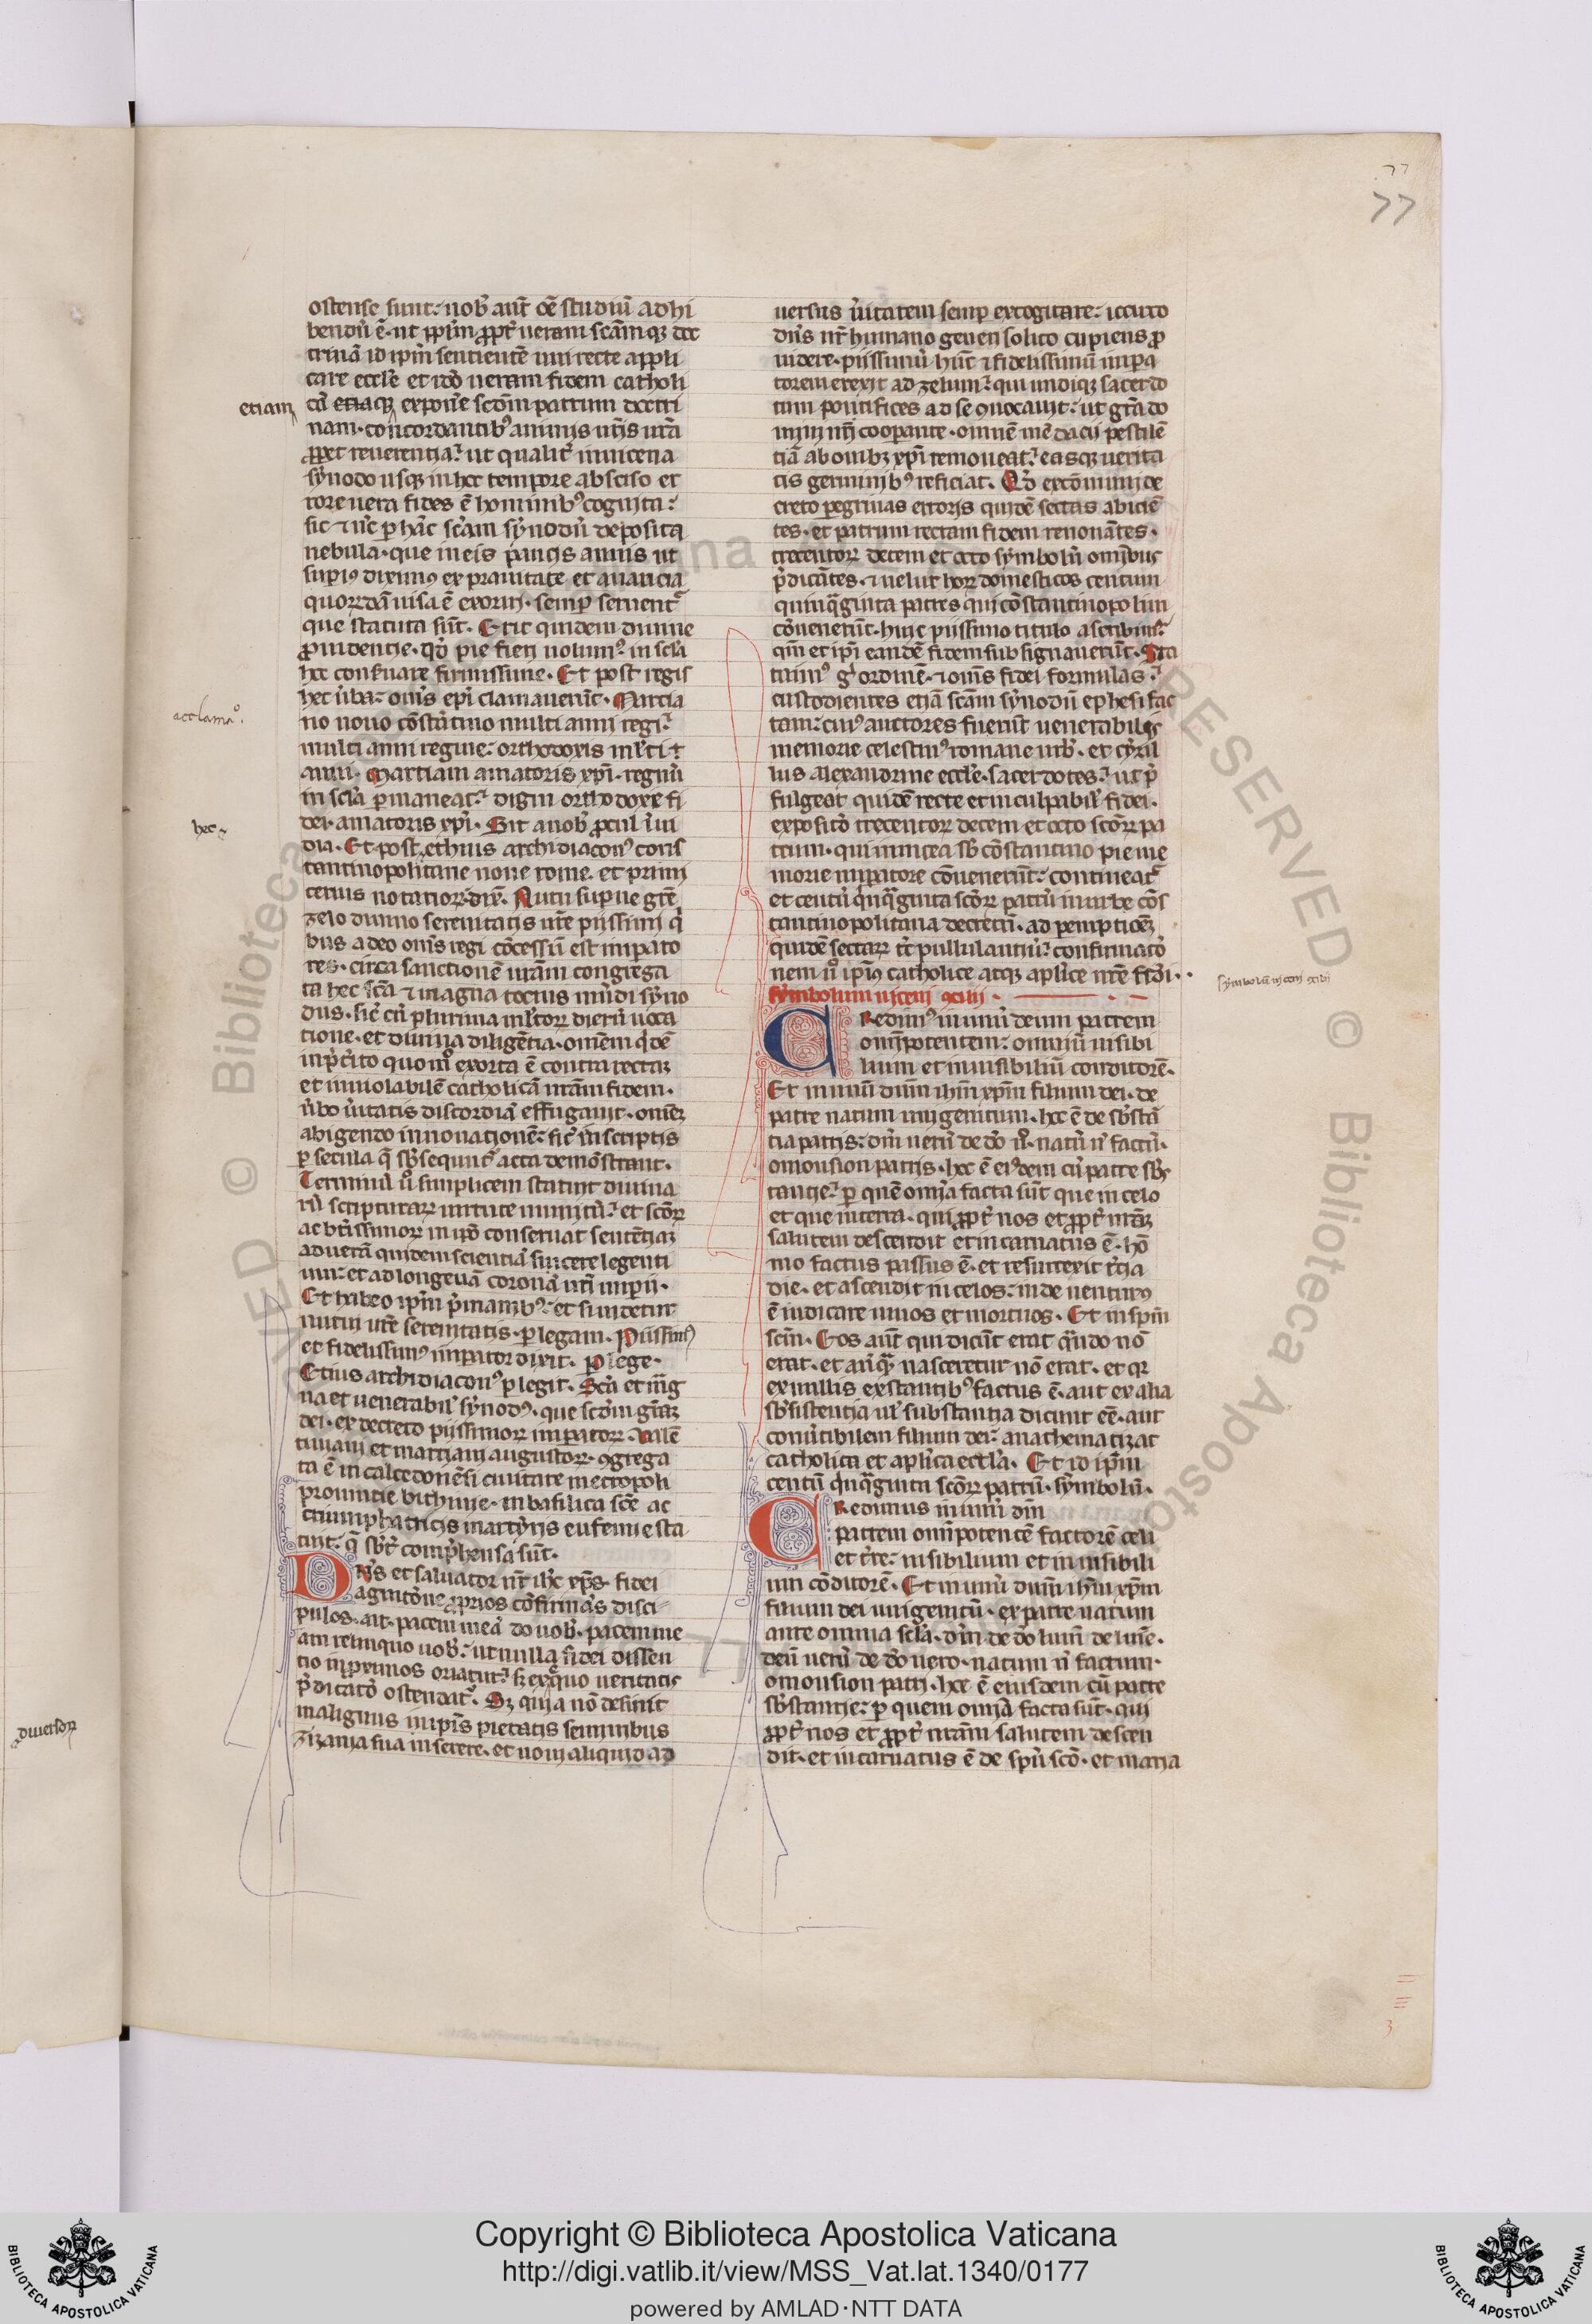 77
77
ostense sunt. nob aut oē studiū adhi
bendū ē. ut ipsim ꝓpt ueram scāmqꝫ doc
trinā id ipm sentientē sui recte appli
care eccle et ido ueram fidem catholi
etiam
cā etiaqꝫ expone scōm patrum doctri
nam. concordantibꝰ animis uris urā
ꝓpt reuerentia. ut qualit in nicena
synodo usqꝫ in hoc tempore absciso et
rore uera fides ē hominibꝰ cognita.
sic ⁊ nc ꝑ hāc scam synodū deposita
nebula. que in eis paucis annis ut
supiꝰ diximꝰ ex prauitate et auaricia
quorūdā uisa ē exoriri. semp seruent
que statuta sūt. Erit quidem diuine
ꝓuidentie. qd pie fieri uolumꝰ. in scla
hoc conseruare firmissime. Et post regis
hec uba. omīs epi clamauerūt. Marcia
acclamaº.
no nouo cōstantino multi anni regi.
multi anni regine. orthodoxis mlti
anni. Martiani amatoris xpi. regnū
in scla pmaneat. digni orthodoxe fi
hec
dei. amatoris xpi. Sit a nob ꝓcul ui
dia. Et post ethius archidiaconꝰ cons
tantinopolitane noue rome. et primi
cerius notarioꝝ. dix. Nutu supne grē
zelo diuino serenitatis ure piissimi q
bus a deo omīs regi cōcessū est impato
res. circa sanctionē urām congrega
ta hec scā ⁊ magna tocius mūdi syno
dus. sic cū plurima mltoꝝ dierū uoca
tione. et diuina diligētia. omēm qdē
inpcito quo mō exorta ē contra rectaꝫ
et inuiolabilē catholicā nrām fidem.
ubo uitatis discordiā effugauit. omēꝫ
abigendo innouationē. sic in scriptis
ꝑ secula q sbsequnt acta demōstrant.
Terminū u simplicem statuit diuina
rū scripturaꝝ uirtute munitū. et scōꝝ
ac btissimoꝝ in qo conseruat sentētiaꝫ
ad uerā quidem scientiā sincere legenti
um. et ad longeuā coronā uri imperii.
Et habeo ipm p manibꝰ. et si uidetur
nutui ure serenitatis. plegam. Piissimꝰ
et fidelissimꝰ impator dixit. Plege.
Etius archidiaconꝰ plegit. Scā et mag
na et uenerabil synodꝰ. que scdm grāꝫ
dei. ex decreto piissimoꝝ impatoꝝ. Valē
tiniani et martiani augustoꝝ. ꝯgrega
ta ē in calcedonēsi ciuitate metropoli
prouintie bithinie. in basilica scē ac
triumphatricis martyris eufemie sta
tuit. q sbt compⁱhensa sūt.
Dns et saluator nr ihc xps fidei
agnitōne ꝓprios cōfirmās disci
pulos. ait. pacem meā do uob. pacem me
am relinquo uob. ut nulla fidei dissen
tio in proximos oriatur. sꝫ ex quo ueritatis
pdicatō ostendat. Sꝫ quia nō desinit
malignus impiis pietatis seminibus
zizania sua inserere. et noui aliquid ad
diuersoꝝ
uersus uitatem semp excogitare. iccirco
dns nr humano generi solito cupiens ꝓ
uidere. piissimū hūc ⁊ fidelissimū impa
torem erexit ad zelum. qui undiqꝫ sacerdo
tum pontifices ad se ꝯuocauit. ut gra do
mini nri coopante. omnē mēdacii pestilē
tiā ab ouibꝫ xpi remoueat. easqꝫ uerita
tis germinibꝰ reficiat. Qd ex cōmuni de
creto peginas erroris quidē sectas abicie
tes. et patrum rectam fidem renouātes.
trecentoꝝ decem et octo symbolū omibus
pdicātes. ⁊ uelut hoꝝ domesticos centum
quinqginta patres qui cōstantinopolim
cōuenerūt. huic piissimo titulo ascribimꝰ.
qm et ipi eandē fidem subsignauerūt. Sta
tuimꝰ g ordinē. ⁊ omīs fidei formulas.
custodientes etiā scām synodū ephesi fac
tam. cuiꝰ auctores fuerūt uenerabilis
memorie celestinꝰ romane urb. et cyril
lus alexandrine eccle. sacerdotes. ut p
fulgeat quidē recte et inculpabil fidei.
expositō trecentoꝝ decem et octo scōꝝ pa
trum. qui in nicea sb cōstantino pie me
morie impatore cōuenerūt. contineat
et centū qnqginta scōꝝ patrū in urbe cōs
tantinopolitana decretū. ad pemptionē
quidē sectaꝝ tc pullulantiū. confirmatō
nem u ipiꝰ catholice atqꝫ aplice nre fidei.
symbolum niceni
symbolum niceni
Credimꝰ in unū deum patrem
omipotentem. omniū uisibi
lium et inuisibiliū conditorē.
Et in unū dnm ihm xpm filium dei. de
patre natum unigenitum. hoc ē de sbstā
tia patris. dm uerū de do uo. natū n factū.
omousion patris. hoc ē eiꝰdem cū patre sbs
tantie. ꝑ quē omīa facta sūt que in celo
et que in terra. qui ꝓpt nos et ꝓpt nrāꝫ
salutem descendit et incarnatus ē. hō
mo factus passus ē. et resurrexit tcia
die. et ascendit in celos. inde uenturꝰ
ē iudicare uiuos et mortuos. Et in spm
scm. Eos aut qui dicūt erat quādo nō
erat. et anqꝫ nasceretur nō erat. et qr
ex nullis exstantibꝰ factus ē. aut ex alia
sbsistentia ul substantia dicunt eē. aut
conutibilem filium dei. anathematizat
catholica et aplica eccla. Et id ipm
centū qnqginta scōꝝ patrū. symbolū.
Credimus in unū dm
patrem omipotentē factorē celi
et tre. uisibilium et inuisibili
um cōditorē. Et in unū dnm ihm xpm
filium dei unigenitū. ex patre natum
ante omnia scla. dm de do lumē de lumē.
deū uerū de do uero. natum n factum.
omousion patri. hoc ē eiusdem cū patre
sbstantie. ꝑ quem omīa facta sūt. qui
ꝓpt nos et ꝓpt nrām salutem descen
dit. et incarnatus ē de spu scō. et maria
Copyright © Biblioteca Apostolica Vaticana
http://digi.vatlib.it/view/MSS_Vat.lat.1340/0177
powered by AMLAD·NTT DATA
BIBLIOTECA APOSTOLICA VATICANA
BIBLIOTECA APOSTOLICA VATICANA